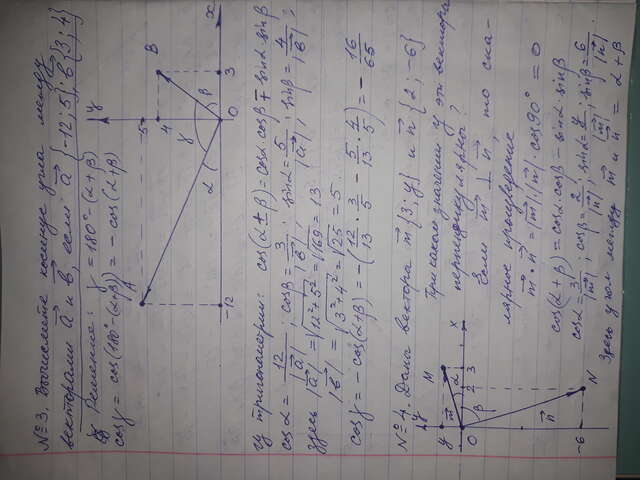 №3. Вычислите косинус угла между
векторами a⃗ и b⃗, если a⃗ {-12; 5}; b⃗ {3; 4}
Решение: γ = 180° - (α + β)
cosγ = cos(180° - (α+β)) = - cos(α+β)
y
A
5
4
B
γ
α
β
x
-12
O
3
из тригонометрии: cos(α ± β) = cosα · cosβ ∓ sinα · sinβ
cosα = 12/|a⃗|; cosβ = 3/|b⃗|; sinα = 5/|a⃗|; sinβ = 4/|b⃗|;
здесь |a⃗| = √(12² + 5²) = √169 = 13
|b⃗| = √(3² + 4²) = √25 = 5.
cosγ = - cos(α+β) = -(12/13 · 3/5 - 5/13 · 4/5) = - 16/65
№4. Даны вектора m⃗ {3; y} и n⃗ {2; -6}
При каком значении y эти вектора
перпендикулярны?
Если m⃗ ⊥ n⃗, то ска-
лярное произведение
m⃗ · n⃗ = |m⃗| · |n⃗| · cos90° = 0
y
y
M
m⃗
α
x
O
β
2
3
n⃗
-6
N
cos(α + β) = cosα · cosβ - sinα · sinβ
cosα = 3/|m⃗|; cosβ = 2/|n⃗|; sinα = y/|m⃗|; sinβ = 6/|n⃗|.
Здесь угол между m⃗ и n⃗ = α + β